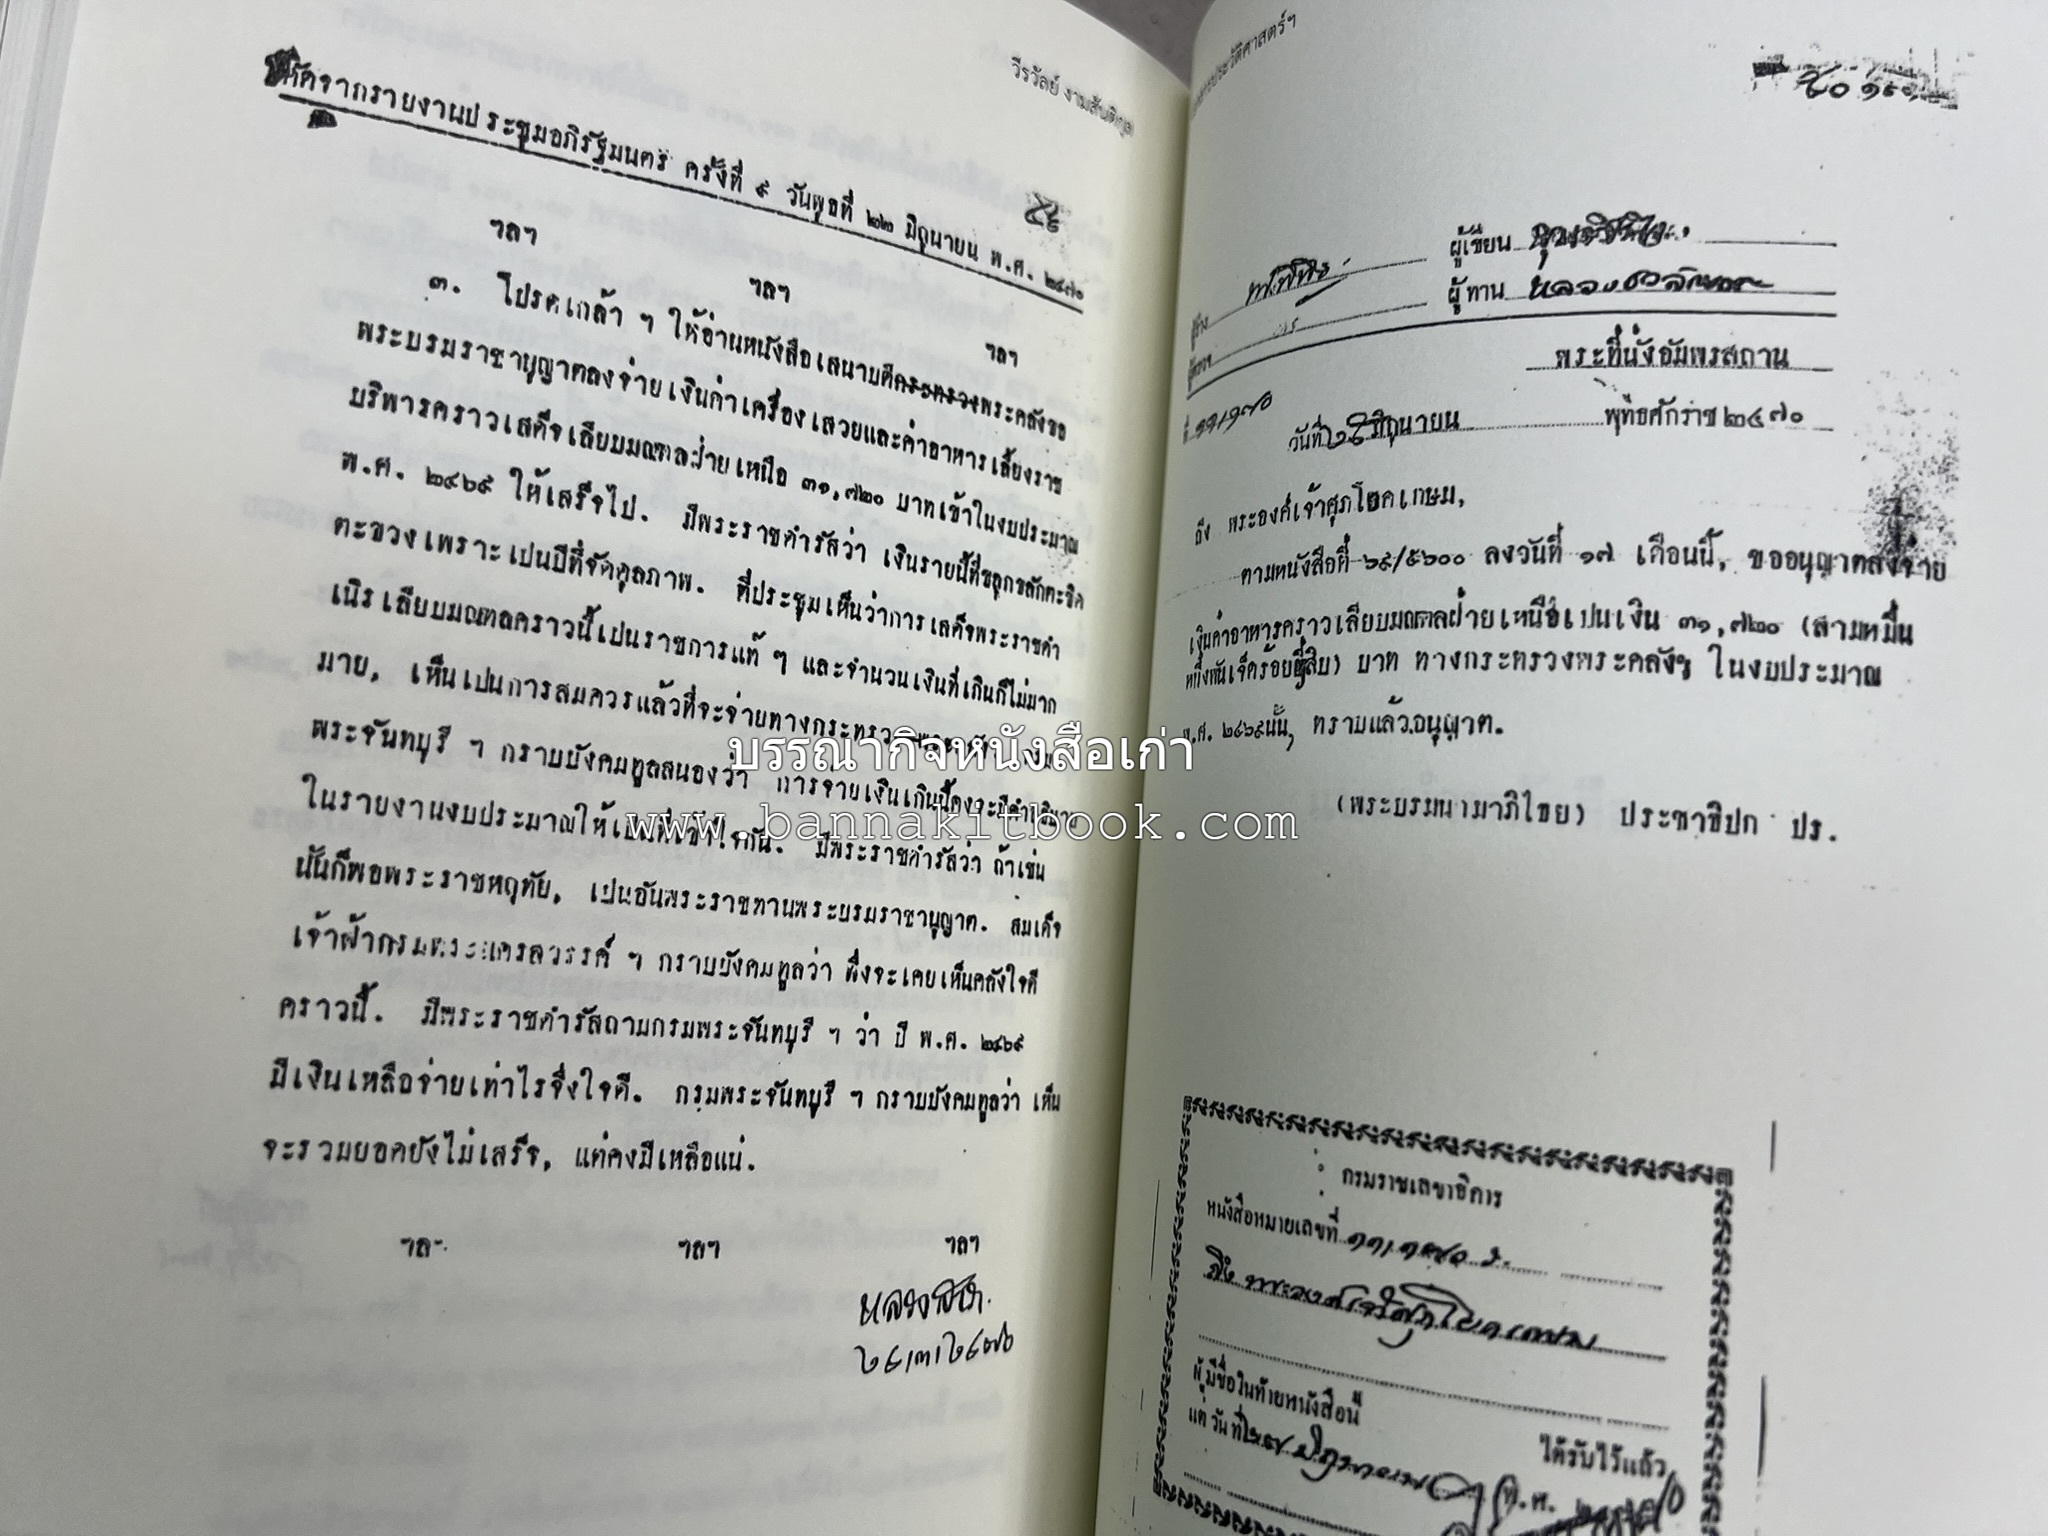 วีรวัลย์ งามสันติกุล
คัดจากรายงานประชุมอภิรัฐมนตรี ครั้งที่ ๙ วันพุธที่ ๒๒ มิถุนายน พ.ศ. ๒๔๗๐
ฯลฯ ฯลฯ ฯลฯ
๓. โปรดเกล้า ฯ ให้อ่านหนังสือเสนาบดีกระทรวงพระคลังขอ
พระบรมราชานุญาตลงจ่ายเงินค่าเครื่องเสวยและค่าอาหารเลี้ยงราช
บริพารคราวเสด็จเลียบมณฑลฝ่ายเหนือ ๓๑,๗๒๐ บาทเข้าในงบประมาณ
พ.ศ. ๒๔๖๙ ให้เสร็จไป. มีพระราชดำรัสว่า เงินรายนี้ที่ขลุกขลักตะขิด
ตะขวงเพราะเปนปีที่จัดดุลภาพ. ที่ประชุมเห็นว่าการเสด็จพระราชดำ
เนิรเลียบมณฑลคราวนี้เปนราชการแท้ ๆ และจำนวนเงินที่เกินก็ไม่มาก
มาย, เห็นเปนการสมควรแล้วที่จะจ่ายทางกระทรวง
พระจันทบุรี ฯ กราบบังคมทูลสนองว่า การจ่ายเงินเกินนี้คงจะมีคำอธิบาย
ในรายงานงบประมาณให้เปนที่เข้าใจกัน. มีพระราชดำรัสว่า ถ้าเช่น
นั้นก็พอพระราชหฤทัย, เปนอันพระราชทานพระบรมราชานุญาต. สมเด็จ
เจ้าฟ้ากรมพระนครสวรรค์ ฯ กราบบังคมทูลว่า พึ่งจะเคยเห็นคลังใจดี
คราวนี้. มีพระราชดำรัสถามกรมพระจันทบุรี ฯ ว่า ปี พ.ศ. ๒๔๖๙
มีเงินเหลือจ่ายเท่าไรจึ่งใจดี. กรมพระจันทบุรี ฯ กราบบังคมทูลว่า เห็น
จะรวมยอดยังไม่เสร็จ, แต่คงมีเหลือแน่.
ฯลฯ ฯลฯ ฯลฯ
ประวัติศาสตร์ฯ
ผู้เขียน
ผู้ร่าง
ผู้ทาน
ผู้ตรวจ
พระที่นั่งอัมพรสถาน
ที่ ๑๑/๑๗๐
วันที่ มิถุนายน พุทธศักราช ๒๔๗๐
ถึง พระองค์เจ้าศุภโยคเกษม,
ตามหนังสือที่ ๖๙/๕๖๐๐ ลงวันที่ ๑๗ เดือนนี้, ขออนุญาตลงจ่าย
เงินค่าอาหารคราวเลียบมณฑลฝ่ายเหนือเปนเงิน ๓๑,๗๒๐ (สามหมื่น
หนึ่งพันเจ็ดร้อยยี่สิบ) บาท ทางกระทรวงพระคลังฯ ในงบประมาณ
พ.ศ. ๒๔๖๙นั้น, ทราบแล้วอนุญาต.
(พระบรมนามาภิไธย) ประชาธิปก ปร.
กรมราชเลขาธิการ
หนังสือหมายเลขที่
ถึง พระองค์เจ้าศุภโยคเกษม
ผู้มีชื่อในท้ายหนังสือนี้
ได้รับไว้แล้ว
แต่ วันที่ มิถุนายน พ.ศ. ๒๔๗๐
บรรณากิจหนังสือเก่า
www.bannakitbook.com